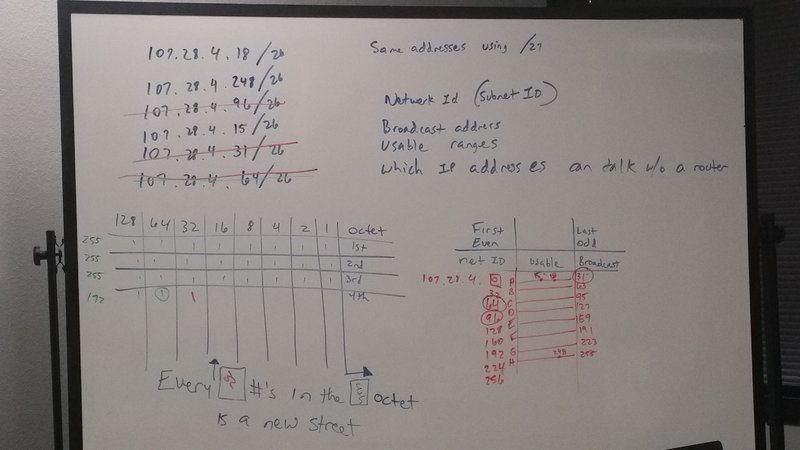 107.28.4.18/26
107.28.4.248/26
107.28.4.96/26
107.28.4.15/26
107.28.4.31/26
107.28.4.64/26
Same addresses using /27
Network Id (Subnet ID)
Broadcast address
Usable ranges
Which IP addresses can talk w/o a router
128 64 32 16 8 4 2 1 octet
255 1 1 1 1 1 1 1 1 1st
255 1 1 1 1 1 1 1 1 2nd
255 1 1 1 1 1 1 1 1 3rd
192 1 1 1 4th
Every 32 #'s in the octet
is a new street
First Even Last odd
net ID usable Broadcast
107.28.4.0 A 15 18 31
32 B 63
64 C 95
96 D 127
128 E 159
160 F 191
192 G 223
224 H 248 255
256